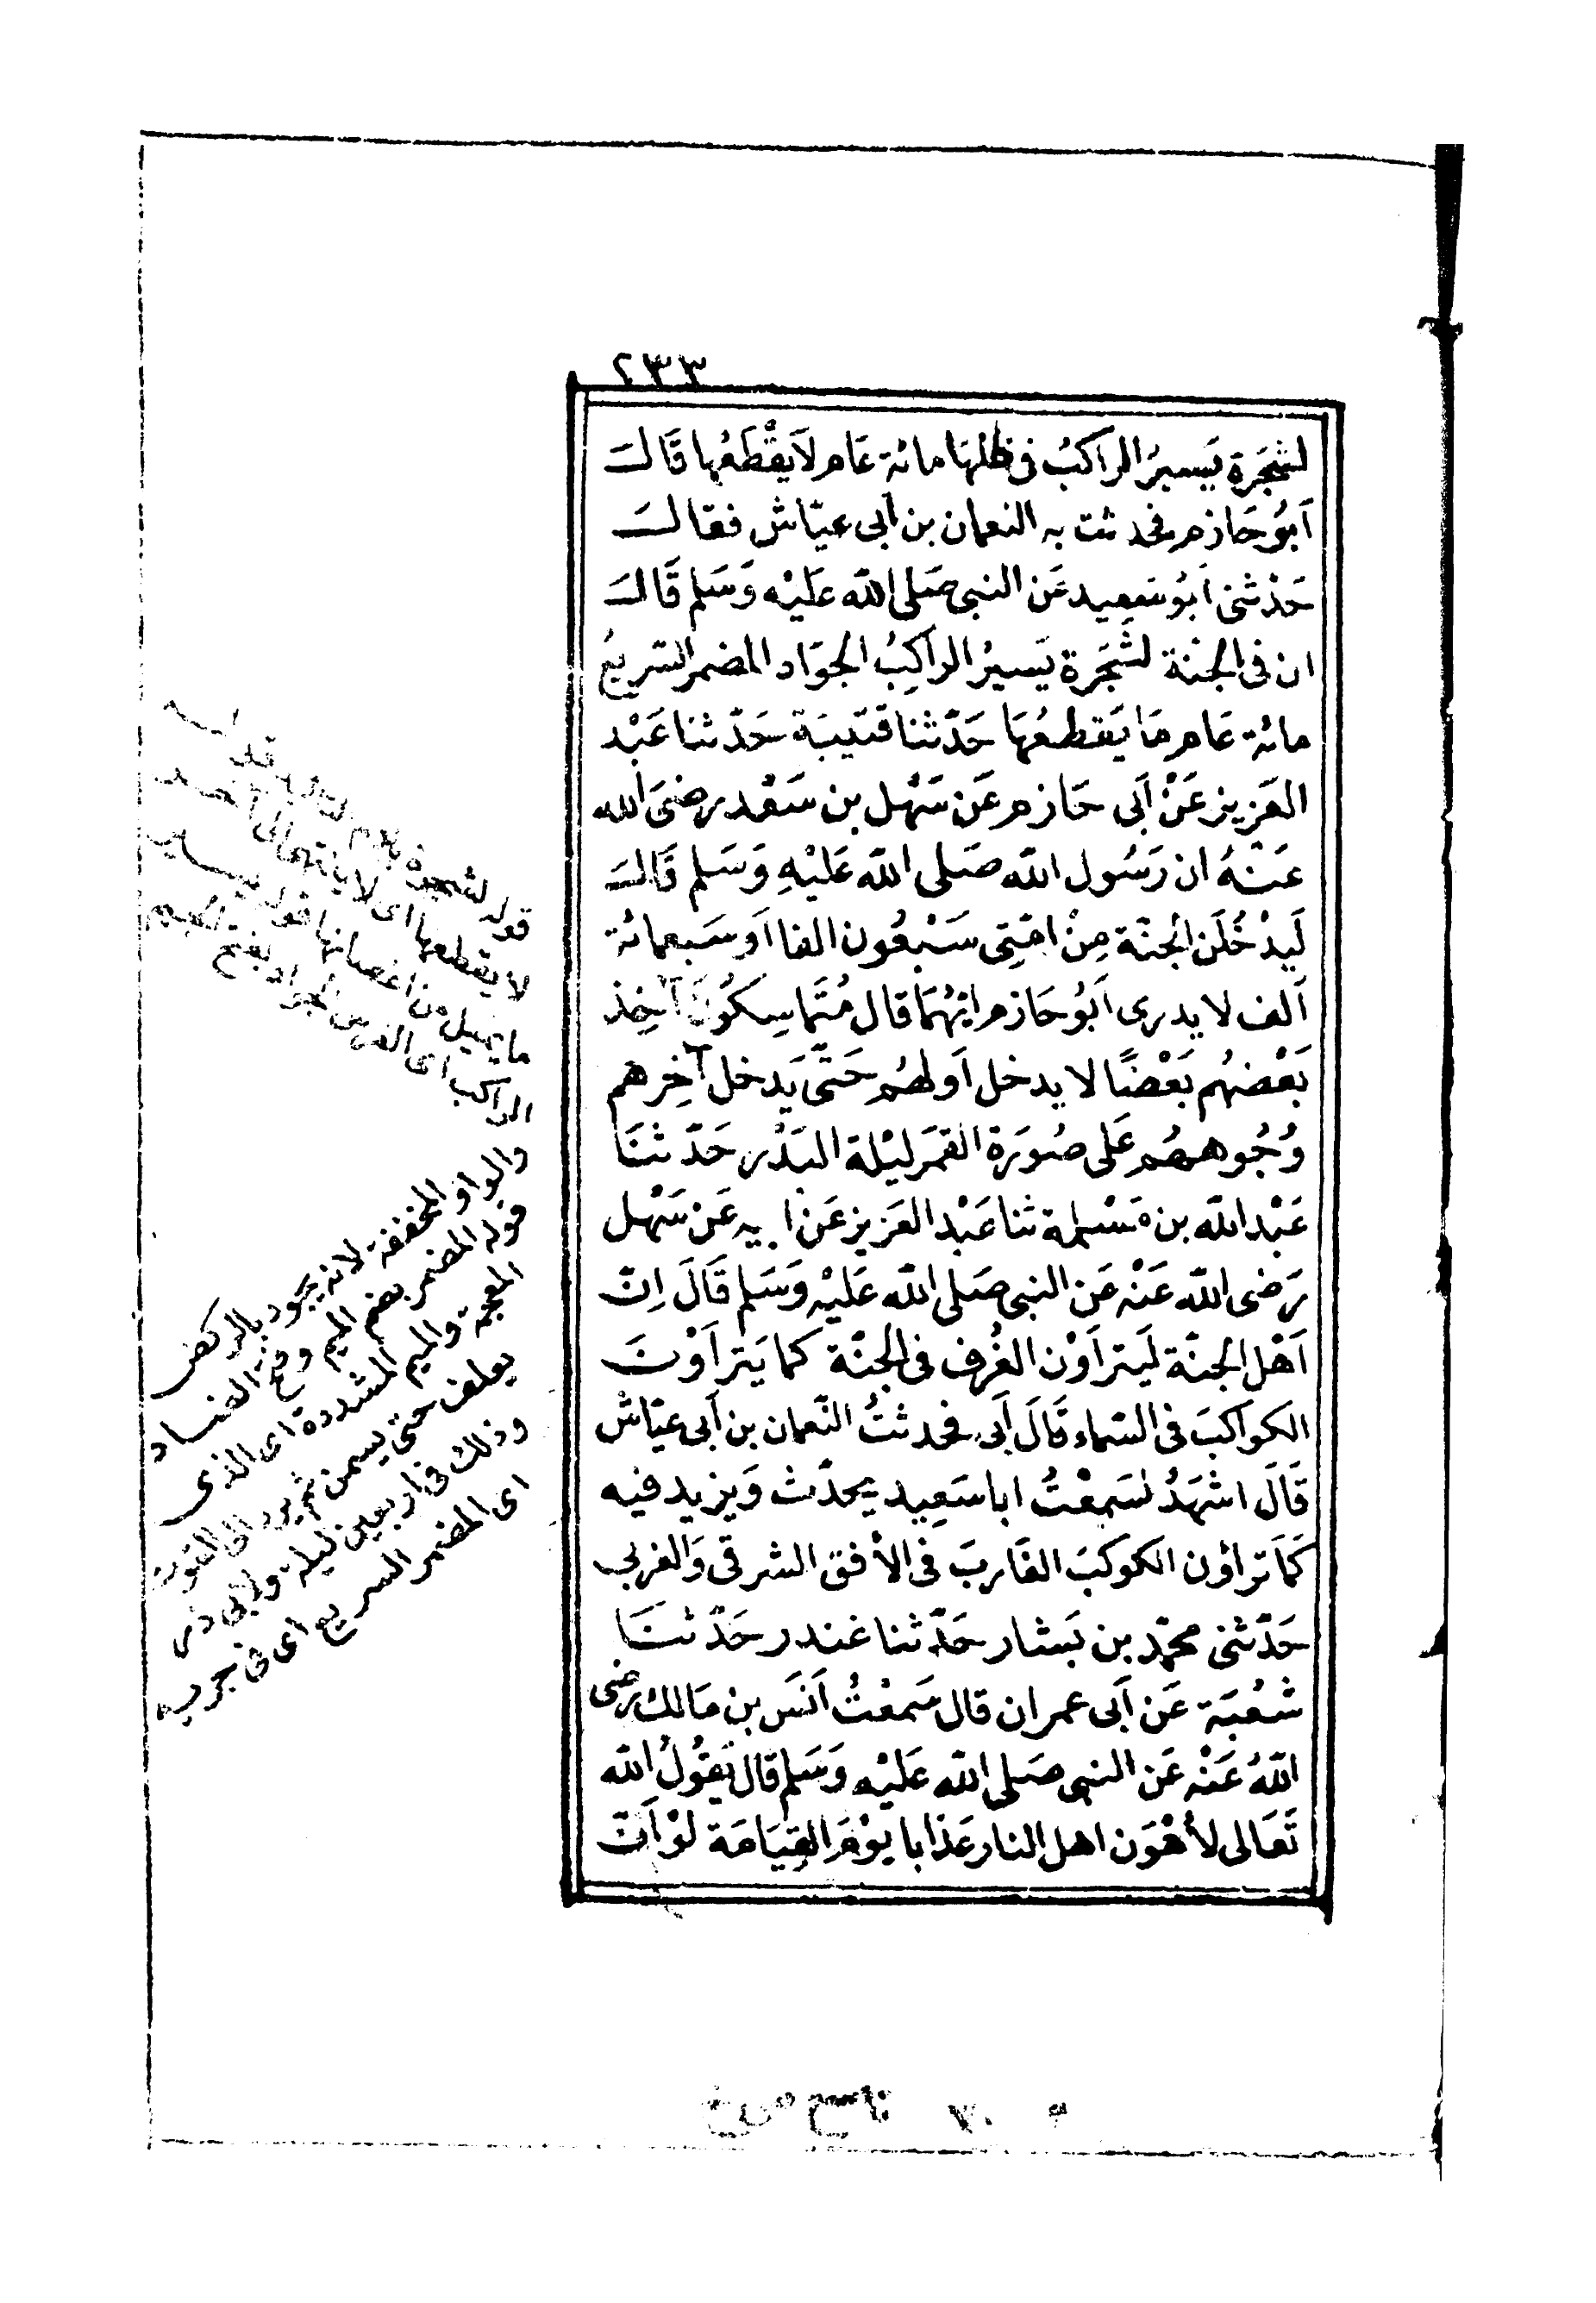 ٢٣٣
لشَجَرة يَسيرُ الراكبُ فى ظلهَا مائة عَام لاَيَقْطَعُها قَالَ
اَبُو حَازم فحدثت به النعمان بن اَبى عيّاش فقالَ
حَدثنى اَبُو سَعيد عَن النبى صَلى اللّه عَليْه وَسَلم قَالَ
ان فى الجنّة لشَجَرة يَسيرُ الراكِبُ الجوَاد المضمر السّريعُ
مائة عَام مَا يَقطعُهَا حَدّثنا قتَيبَة حَدّثنا عَبْد
العَزيز عَنْ اَبى حَازم عَن سَهْل بن سَعْد رضىَ الله
عَنْهُ ان رَسُول اللّه صَلى اللّه عَليْهِ وَسَلم قَالَ
لَيدْخُلَن الجنّة مِنْ امّتِى سَبْعُون الفا اَو سَبعمائة
اَلف لا يدرى اَبُو حَازم ايّهُمَا قال مُتَماسِكُونَ آخِذ
بَعْضهُم بَعْضًا لا يدخل اَولهُم حَتّى يَدخل آخِرهم
وُجُوههُم عَلى صُورَة القمَر ليْلة البَدْر حَدّثنَا
عَبْد اللّه بن مَسْلمة ثنا عَبْد العَزيز عَن ابيه عَن سَهْل
رَضى اللّه عَنْه عَن النبى صَلى اللّه عَليْه وَسَلم قَالَ اِنّ
اَهْل الجنّة لَيتراَوْن الغُرف فى الجنّة كما يَتراَوْنَ
الكواكبَ فى السّماء قَالَ اَبى فحدثتُ النّعمان بن اَبى عيّاش
قَالَ اشهَدُ لسَمعْتُ ابا سَعِيد يحدّث وَيزيد فيه
كَمَا تراؤن الكوكبَ الغَاربَ فى الاُفق الشرقى وَالغربى
حَدّثنى محمّد بن بَشار حَدّثنا غندر حَدّثنَا
شعْبَة عَن اَبى عمران قال سَمعْتُ اَنَس بن مَالك رضى
اللّهُ عَنْه عَن النبى صَلى اللّه عَليْه وَسَلم قال يَقُولُ اللّه
تَعَالى لأهْوَن اهل النار عَذابا يَوْمَ القِيَامَة لوْ اَنّ
قوله لشجرة بلام
لا يقطعها اى لا ينتهى الى آخر
ما يميل من اغصانها قوله يسير
الراكب اى الفرس الجواد بفتح الجيم
والواو المخففة لانه يجود بالركض
قوله المضمر بضم الميم وفتح الضاد
المعجمة والميم المشددة اى الذى
يعلف حتى يسمن ثم يرد الى القوت
وذلك فى اربعين ليلة ولابى ذر
اى المضمر السريع اى فى جريه